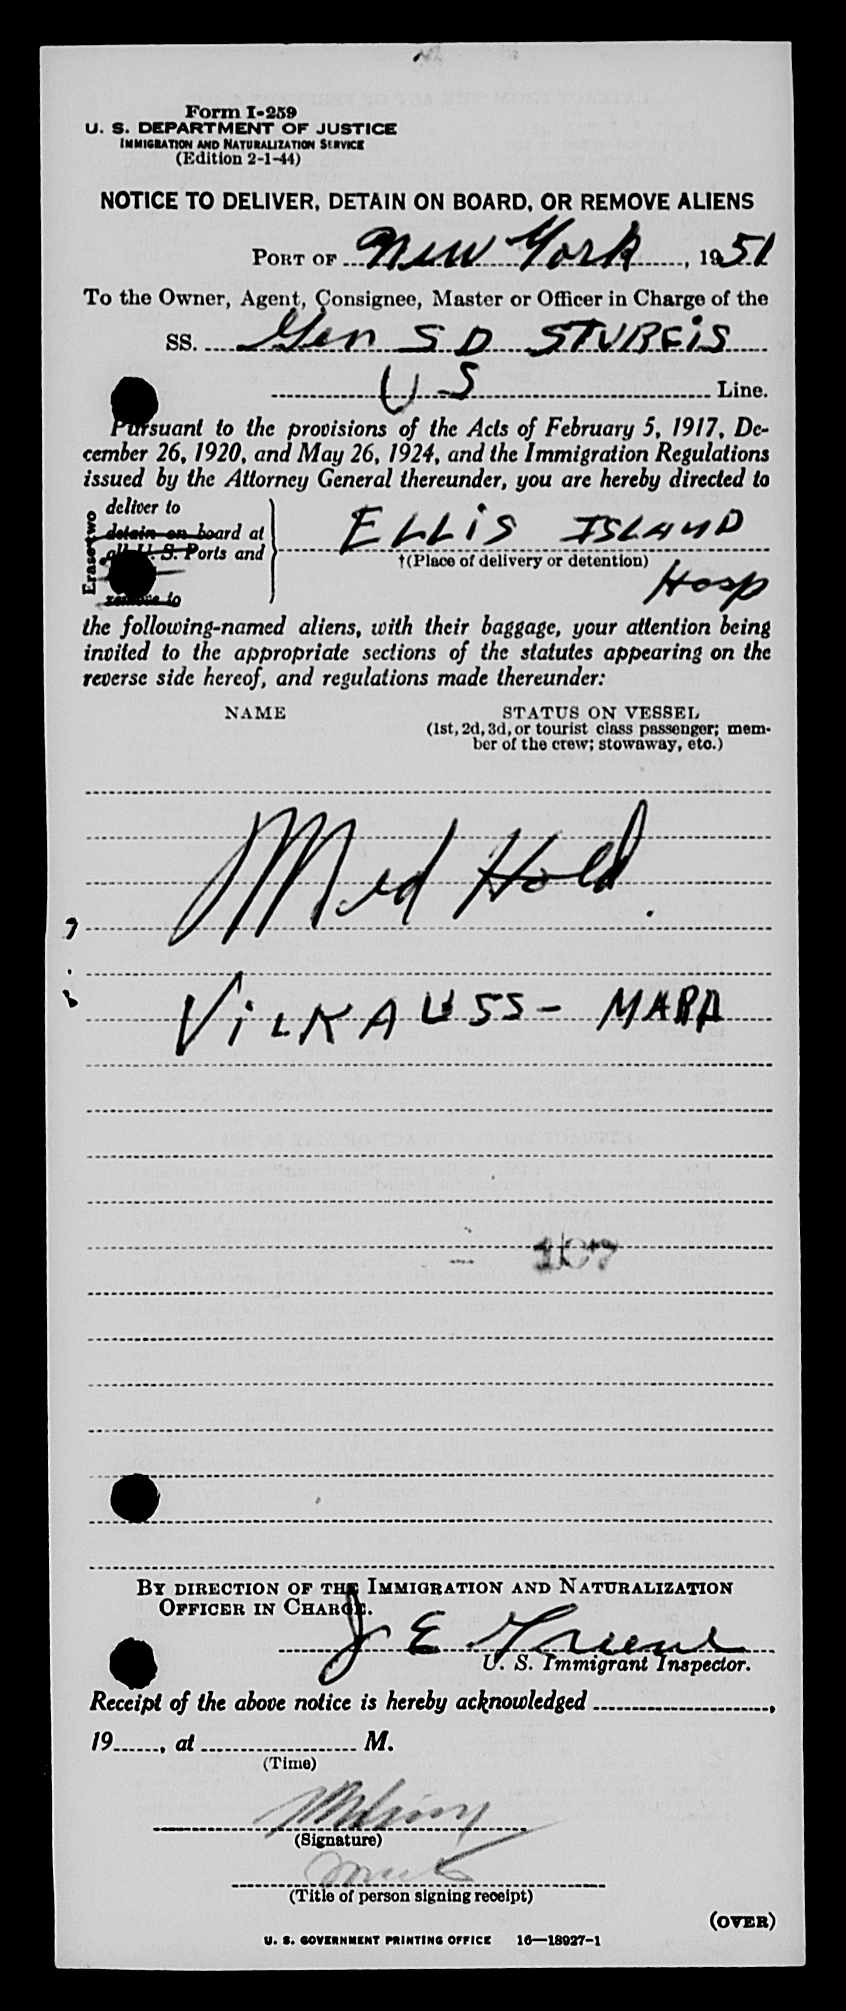 Form I-259
U. S. DEPARTMENT OF JUSTICE
IMMIGRATION AND NATURALIZATION SERVICE
(Edition 2-1-44)
NOTICE TO DELIVER, DETAIN ON BOARD, OR REMOVE ALIENS
PORT OF New York, 1951
To the Owner, Agent, Consignee, Master or Officer in Charge of the
SS. Gen S D STURGIS
US Line.
Pursuant to the provisions of the Acts of February 5, 1917, De-
cember 26, 1920, and May 26, 1924, and the Immigration Regulations
issued by the Attorney General thereunder, you are hereby directed to
Erase two
deliver to
detain on board at
all U. S. Ports and
remove to
ELLIS ISLAND
†(Place of delivery or detention)
Hosp
the following-named aliens, with their baggage, your attention being
invited to the appropriate sections of the statutes appearing on the
reverse side hereof, and regulations made thereunder:
NAME STATUS ON VESSEL
(1st, 2d, 3d, or tourist class passenger; mem-
ber of the crew; stowaway, etc.)
Med Hold.
VILKAUSS - MARA
107
BY DIRECTION OF THE IMMIGRATION AND NATURALIZATION
OFFICER IN CHARGE.
J E Greene
U. S. Immigrant Inspector.
Receipt of the above notice is hereby acknowledged ,
19 , at M.
(Time)
(Signature)
(Title of person signing receipt)
(OVER)
U. S. GOVERNMENT PRINTING OFFICE 16—18927-1